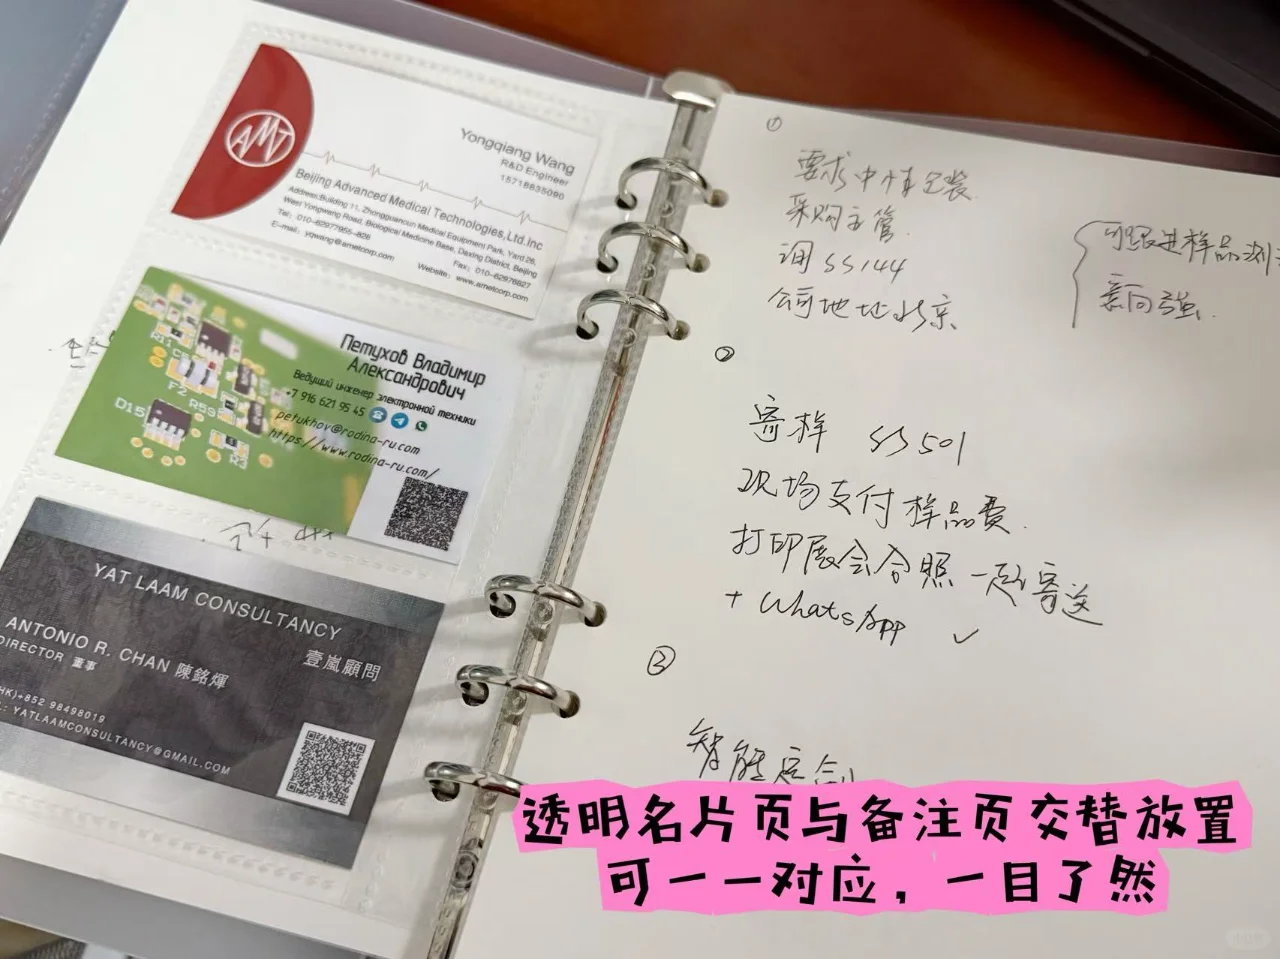 AMT
Yongqiang Wang
R&D Engineer
15718635090
Beijing Advanced Medical Technologies,Ltd.Inc
Address:Building 11, Zhongguancun Medical Equipment Park, Yard 26,
West Yongwang Road, Biological Medicine Base, Daxing District, Beijing
Tel: 010-62977955-826
Fax: 010-62976827
E-mail: yqwang@ametcorp.com
Website: www.ametcorp.com
R11
F2
R59
D15
Петухов Владимир
Александрович
Ведущий инженер электронной техники
+7 916 621 95 45
petukhov@rodina-ru.com
https://www.rodina-ru.com/
YAT LAAM CONSULTANCY
壹嵐顧問
ANTONIO R. CHAN 陳銘煇
DIRECTOR 董事
HK)+852 98498019
L: YATLAAMCONSULTANCY@GMAIL.COM
①
要求中性包装
采购主管
调 SS144
公司地址北京
可跟进样品测
意向强
②
寄样 SS501
现场支付样品费
打印展会合照一起寄送
+ WhatsApp ✓
③
智能定制
透明名片页与备注页交替放置
可一一对应，一目了然